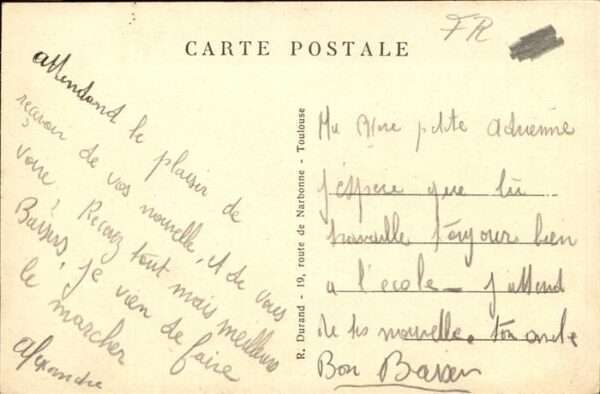 FR
CARTE POSTALE
attendand le plaisir de
recevoir de vos nouvelle, et de vous
voire ? Recevez tout mais meilleurs
Baisers, je vien de faire
le marcher
Alexandre
R. Durand - 19, route de Narbonne - Toulouse
Ma petite Adrienne
j'espere que tu
travaille toujour bien
a l'école - j'attend
de tes nouvelle. ton oncle
Bon Baiser